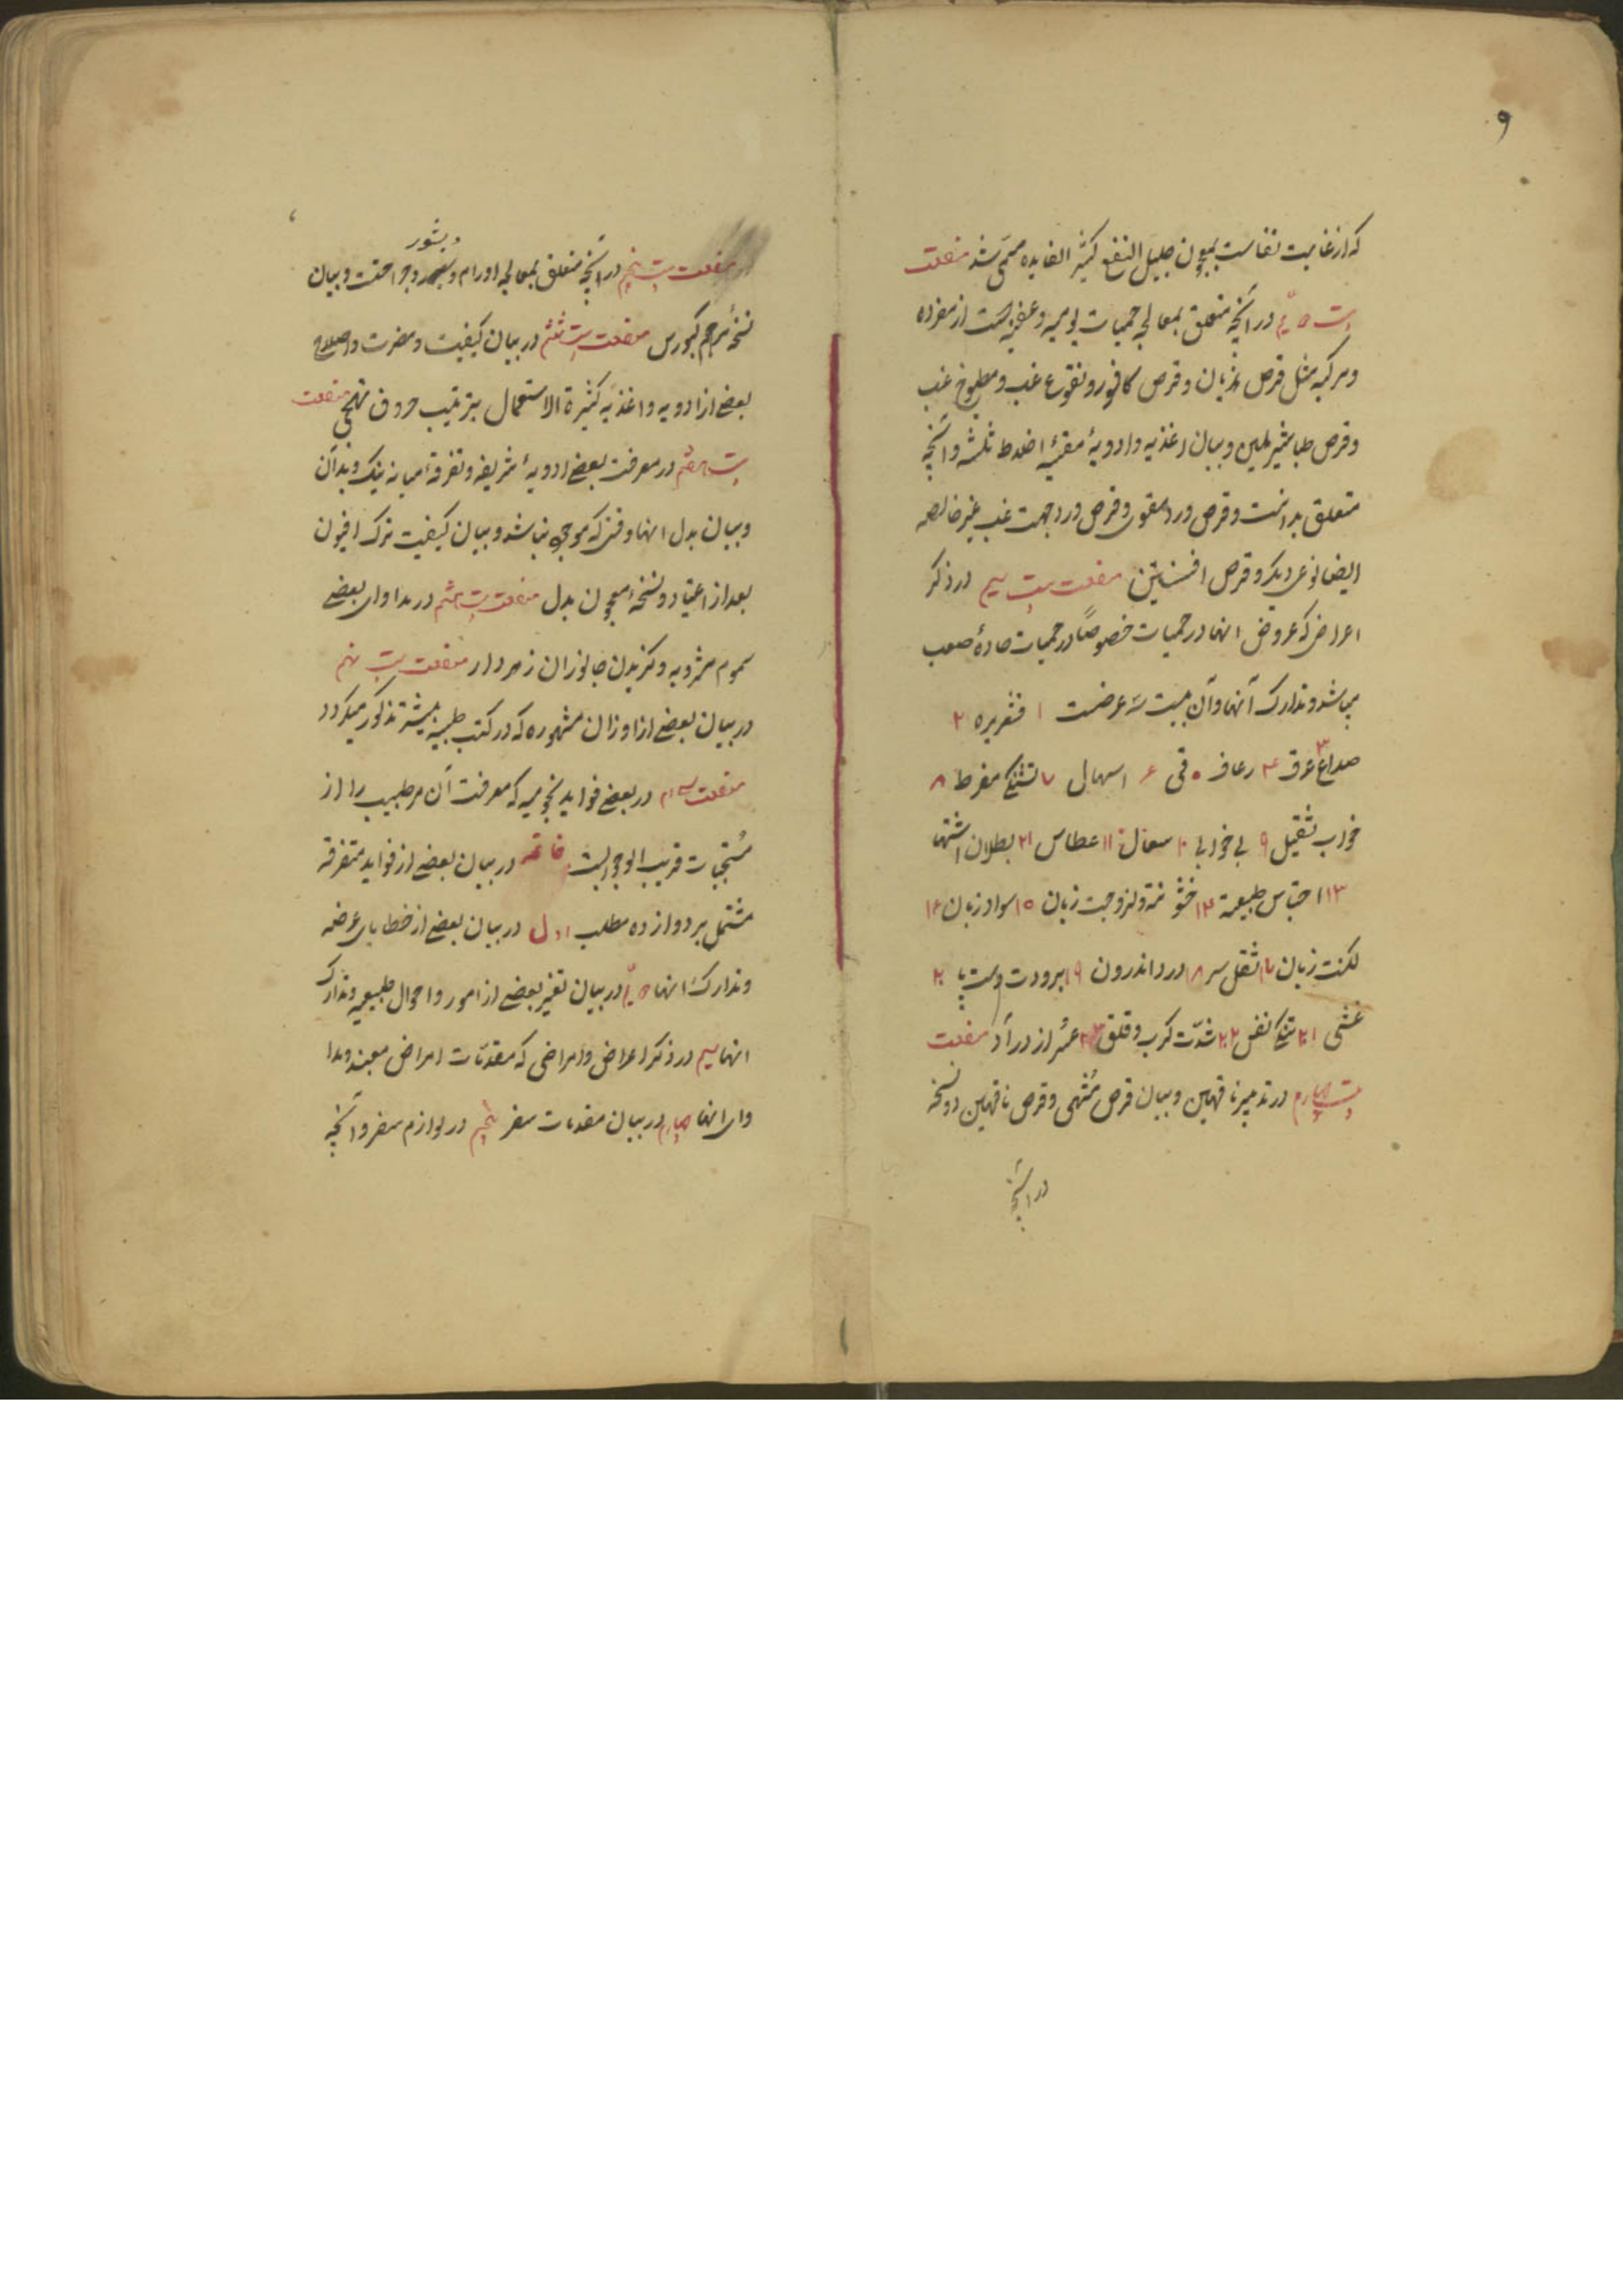 و
که از غایت نفاست بمعجون جلیل النفع کثیر الفایده مسمی شد منفعت
بیست دویّم در آنچه متعلق بمعالجه حمیات یومیه و عفنیه است از مفرده
و مرکبه مثل قرص هذیان و قرص کافور و نقوع غب و مطبوخ غب
و قرص طباشیر ملین و بیان اغذیه و ادویهٔ منقیهٔ اخلاط ثلثه و آنچه
متعلق بدانست و قرص ورد سقوی و قرص ورد جهت غب غیر خالصه
ایضا نوعی دیگر و قرص افسنتین منفعت بیست سیم در ذکر
اعراض که عروض انها در حمیات خصوصاً در حمیات حادهٔ صعب
میباشد و تدارک آنها و آن بیست سه عرضست ۱ قشعریره ۲
صداع ۳ عرق ۴ رعاف ۵ قی ۶ اسهال ۷ تشنگی مفرط ۸
خواب ثقیل ۹ بی خوابی ۱۰ سعال ۱۱ عطاس ۱۲ بطلان اشتها
۱۳ احتباس طبیعة ۱۴ خشونة و لزوجت زبان ۱۵ سواد زبان ۱۶
لکنت زبان ۱۷ ثقل سر ۱۸ درد اندرون ۱۹ برودت دست پا ۲۰
غشی ۲۱ تنگی نفس ۲۲ شدّت کرب و قلق ۲۳ عسُر ازدراد منفعت
بیست چهارم در تدبیر ناقهین و بیان قرص مُشهی و قرص ناقهین دو نسخه
در آنچه
منفعت بیست پنجم در آنچه متعلق بمعالجه اورام و بثور و جراحت و بیان
نسخهٔ مرهم کبورس منفعت بیست ششم در بیان کیفیت و مضرت و اصلاح
بعضی از ادویه و اغذیه کثیرة الاستعمال بترتیب حروف تهجی منفعت
بیست هفتم در معرفت بعضی ادویهٔ شریفه و تفرقهٔ میانه نیک و بد آن
و بیان بدل انها وقتی که موجود نباشد و بیان کیفیت ترک افیون
بعد از اعتیاد و نسخهٔ معجون بدل منفعت بیست هشتم در مداوای بعضی
سموم مشروبه و گزیدن جانوران زهردار منفعت بیست نهم
در بیان بعضی از اوزان مشهوره که در کتب طبیه بیشتر مذکور میگردد
منفعت سی ام در بعضی فواید نجومیه که معرفت آن مر طبیب را از
مُستحبات قریب الوجوبست خاتمه در بیان بعضی از فواید متفرقه
مشتمل بر دوازده مطلب اول در بیان بعضی از خطایای عرضه
و تدارک انها دویّم در بیان تغیر بعضی از امور و احوال طبیعیه و تدارک
انها سیم در ذکر اعراض و امراضی که مقدمّات امراض میشوند و مدا
وای انها چهارم در بیان مقدمات سفر پنجم در لوازم سفر و آنچه